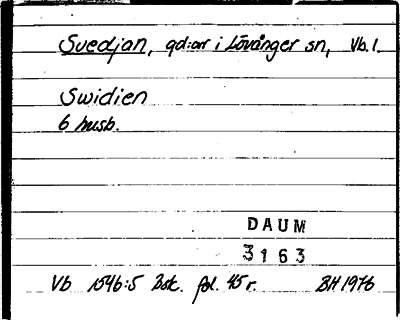 Svedjan, gd:arr i Lövånger sn, Vb.l.
Swidien
6 husb.
DAUM
3163
Vb 1546:5 Bsk. fol. 45 r. BH 1976